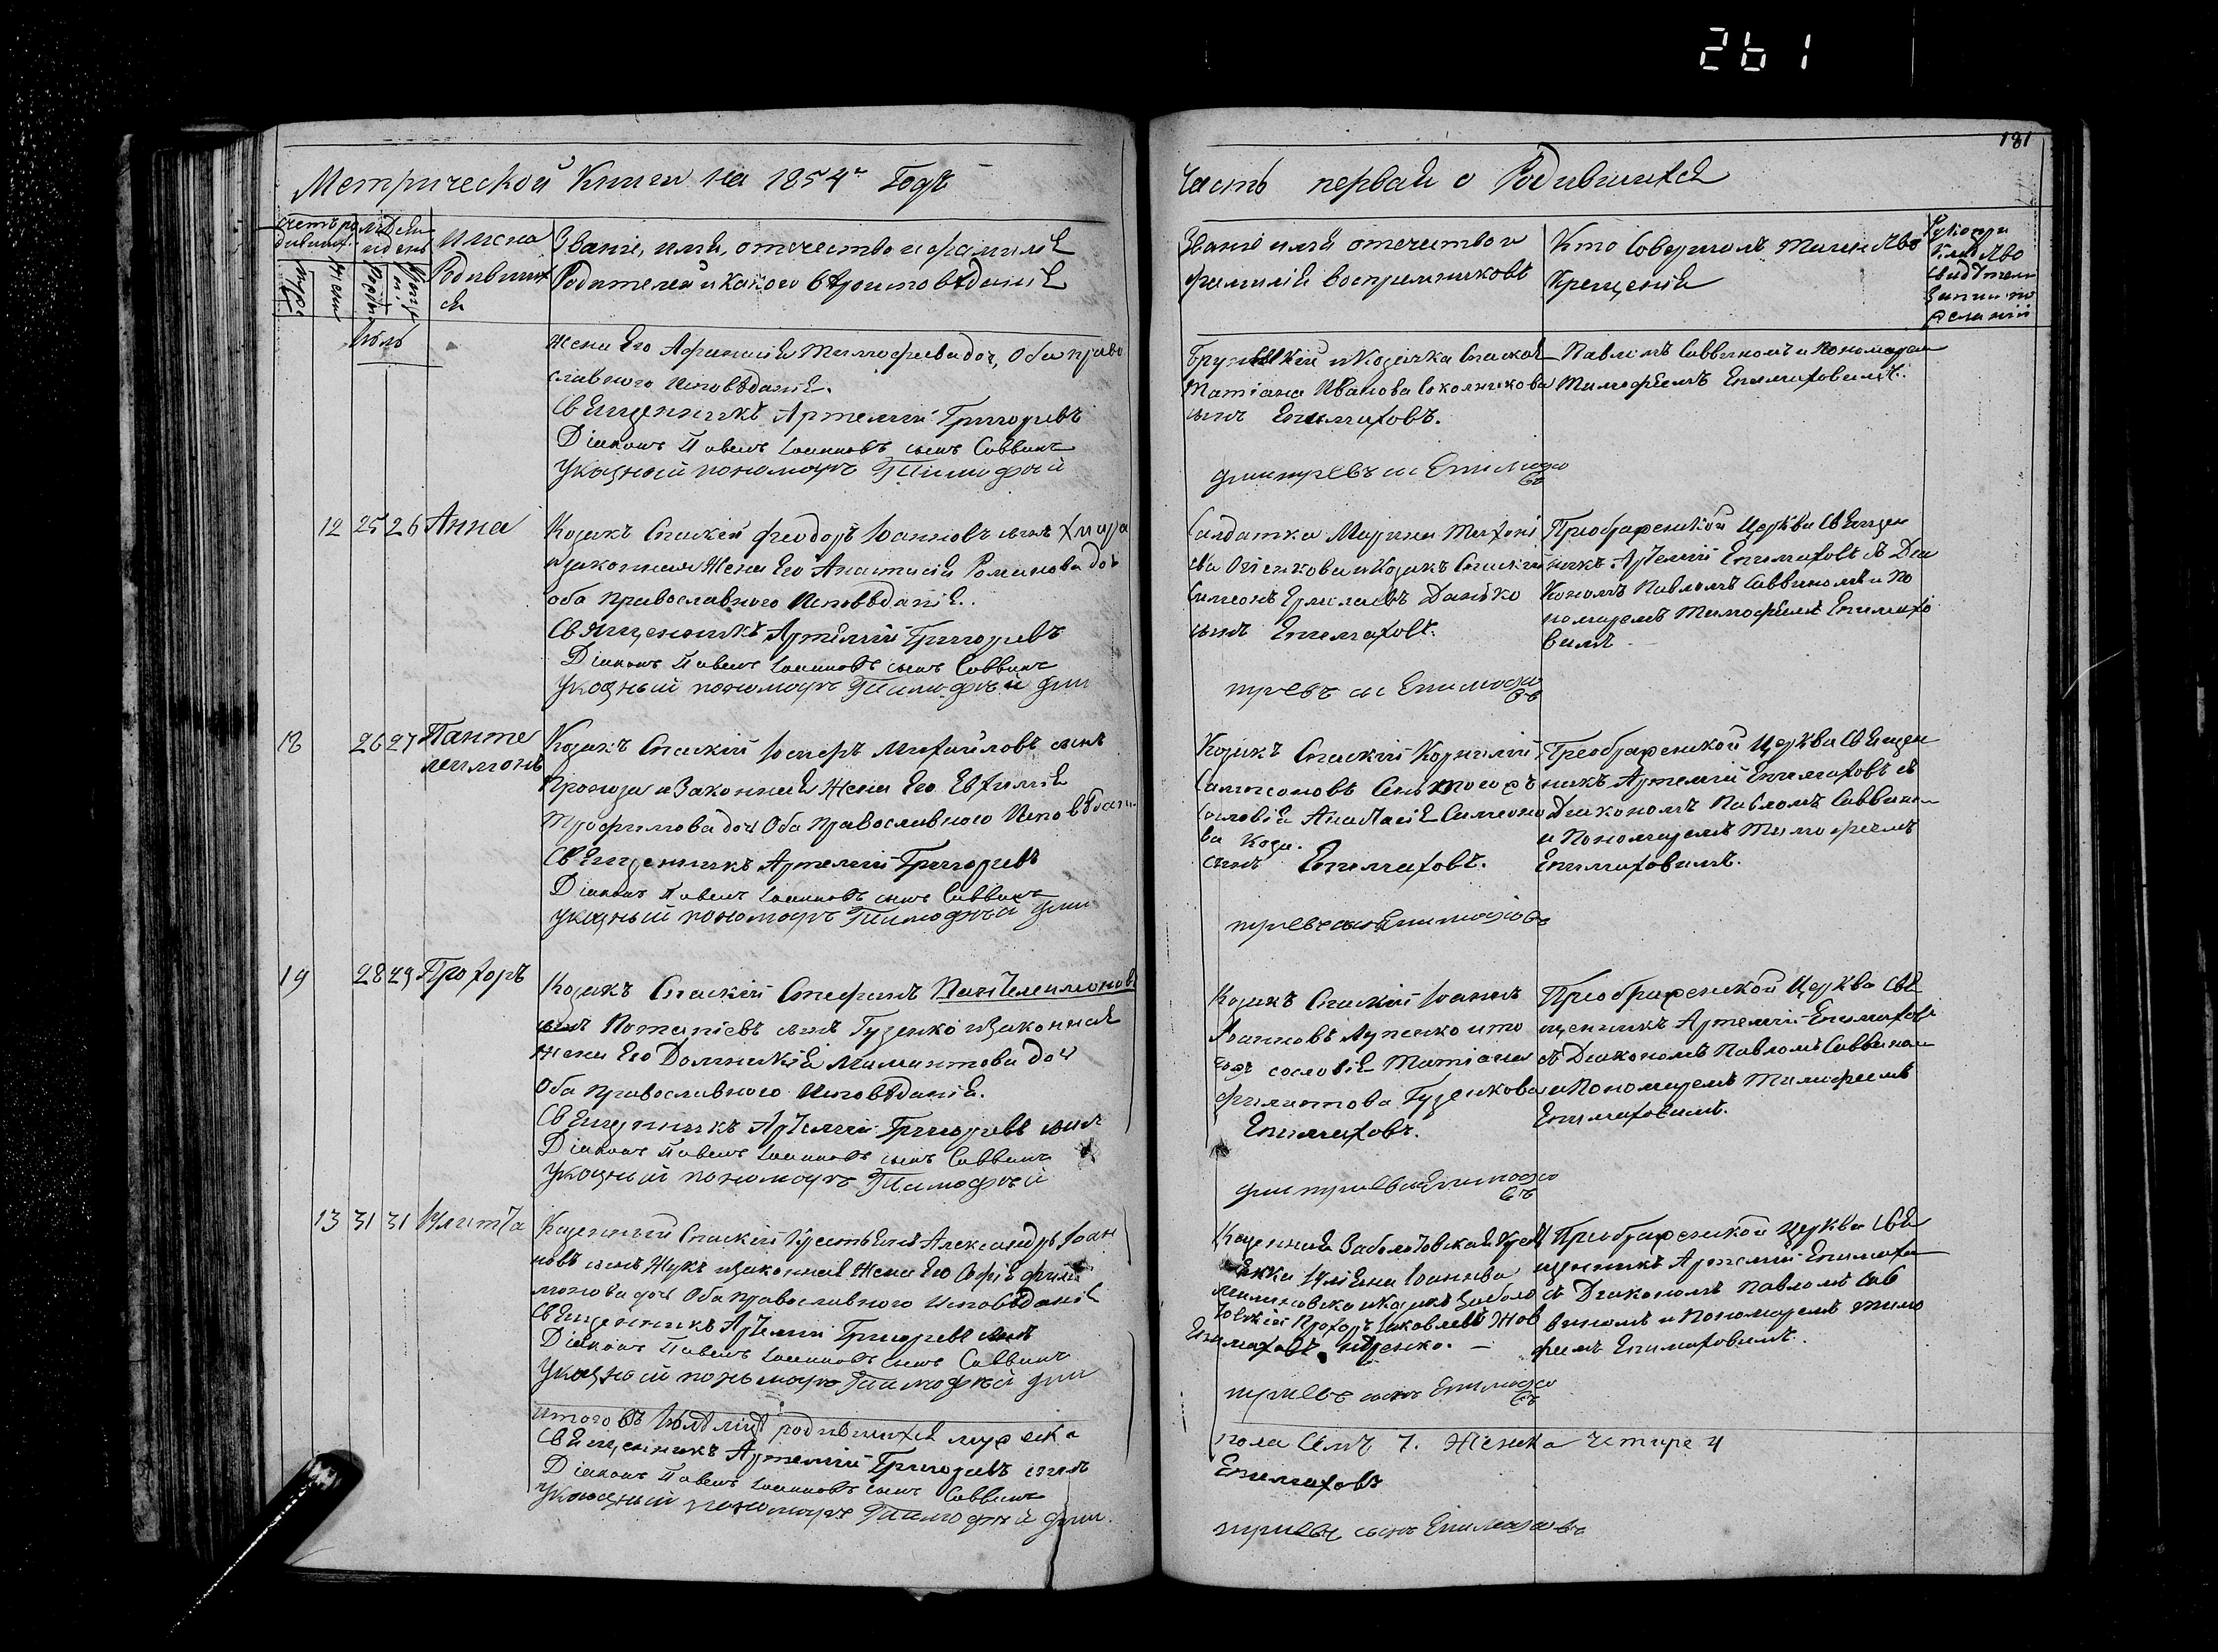 261
181
Метрической Книги на 1854й Годъ
Часть первая о Родившихся
Имена Родившихся
Званіе, имя, отечество и фамилія
Родителей и какого вѣроисповѣданія
Званіе имя отечество и
фамилія воспріемниковъ
Кто совершалъ таинство
Крещенія
Іюль
Жена Его Афанасія Тимофеева доч, Оба право
славного Исповѣданія.
Священникъ Артемій Григорьевъ
Діаконъ Павелъ Іоанновъ сынъ Саввинъ
Указный пономарь Тимофѣй
и Козачка Спаская
Татіана Иванова Соколникова
сынъ Епимаховъ.
Дмитріевъ сы Епимаховъ
Павломъ Саввиномъ и Пономарем
Тимофеемъ Епимаховимъ.
12 25 26 Анна
Козакъ Спаскій Феодоръ Іоанновъ сынъ Хмара
и законная Жена Его Анастасія Романова доч
оба Православного Исповѣданія.
Священникъ Артемій Григорьевъ
Діаконъ Павелъ Іоанновъ сынъ Саввинъ
Указный пономарь Тимофѣй Дми
Салдатка Марина
и Козакъ Спаскій
Симеонъ Ермолаевъ Данько
сынъ Епимаховъ.
тріевъ сы Епимаховъ
Преображенской Церкви Священ
никъ Артемій Епимаховъ съ Діа
кономъ Павломъ Саввиномъ и По
номаремъ Тимофеемъ Епимахо
вимъ
18 26 27 Панте
леимонъ
Козакъ Спаскій Іосифъ Михайловъ сынъ
и Законная Жена Его Евфимія
Трофимова доч Оба Православного Исповѣдані
Священникъ Артемій Григорьевъ
Діаконъ Павелъ Іоанновъ сынъ Саввинъ
указный пономарь Тимофѣй Дми
Козакъ Спаскій Корнилій
Самсоновъ
сословія Анастасія Симеоно
ва
сынъ Епимаховъ.
тріевъ сынъ Епимаховъ
Преображенской Церкви Священ
никъ Артемій Епимаховъ съ
Діакономъ Павломъ Саввином
и Пономаремъ Тимофеемъ
Епимаховимъ.
19 28 29 Прохоръ
Козакъ Спаскій Стефанъ Пантелеимоновъ
сынъ Потапіевъ сынъ Гузенко и Законная
Жена Его Домникія Мамантова доч
Оба Православного Исповѣданія.
Священникъ Артемій Григорьевъ сынъ
Діаконъ Павелъ Іоанновъ сынъ Саввинъ
Указный пономарь Тимофѣй
Козакъ Спаскій Іоаннъ
Іоанновъ Лупенко и то
гожъ сословія Татіана
Филипова Гузенкова
Епимаховъ.
Дмитріевъ сы Епимаховъ
Преображенской Церкви Свя
щенникъ Артемій Епимаховъ
съ Діакономъ Павломъ Саввином
и Пономаремъ Тимофеемъ
Епимаховимъ.
13 31 31 Улитта
Казенный Спаскій Крестьянъ Александръ Іоан
новъ сынъ Жукъ и Законная Жена Его Софія Фили
монова доч Оба Православного Исповѣданія
Священникъ Артемій Григорьевъ сынъ
Діаконъ Павелъ Іоанновъ сынъ Саввинъ
Указный пономарь Тимофѣй Дми
Казенная Заболотовская Крест
янка Іоаннова
Прохоръ Іаковлевъ
Епимаховъ
тріевъ сынъ Епимаховъ
Преображенской Церкви Свя
щенникъ Артемій Епимахов
съ Діакономъ Павломъ Сав
виномъ и Пономаремъ Тимо
феемъ Епимаховимъ.
Итого въ Іюлѣ мцѣ родившихся мужска
Священникъ Артемій Григорьевъ сынъ
Діаконъ Павелъ Іоанновъ сынъ Саввинъ
Указный пономарь Тимофѣй Дми
пола Семъ 7. Женска Четире 4
Епимаховъ
тріевъ сынъ Епимаховъ